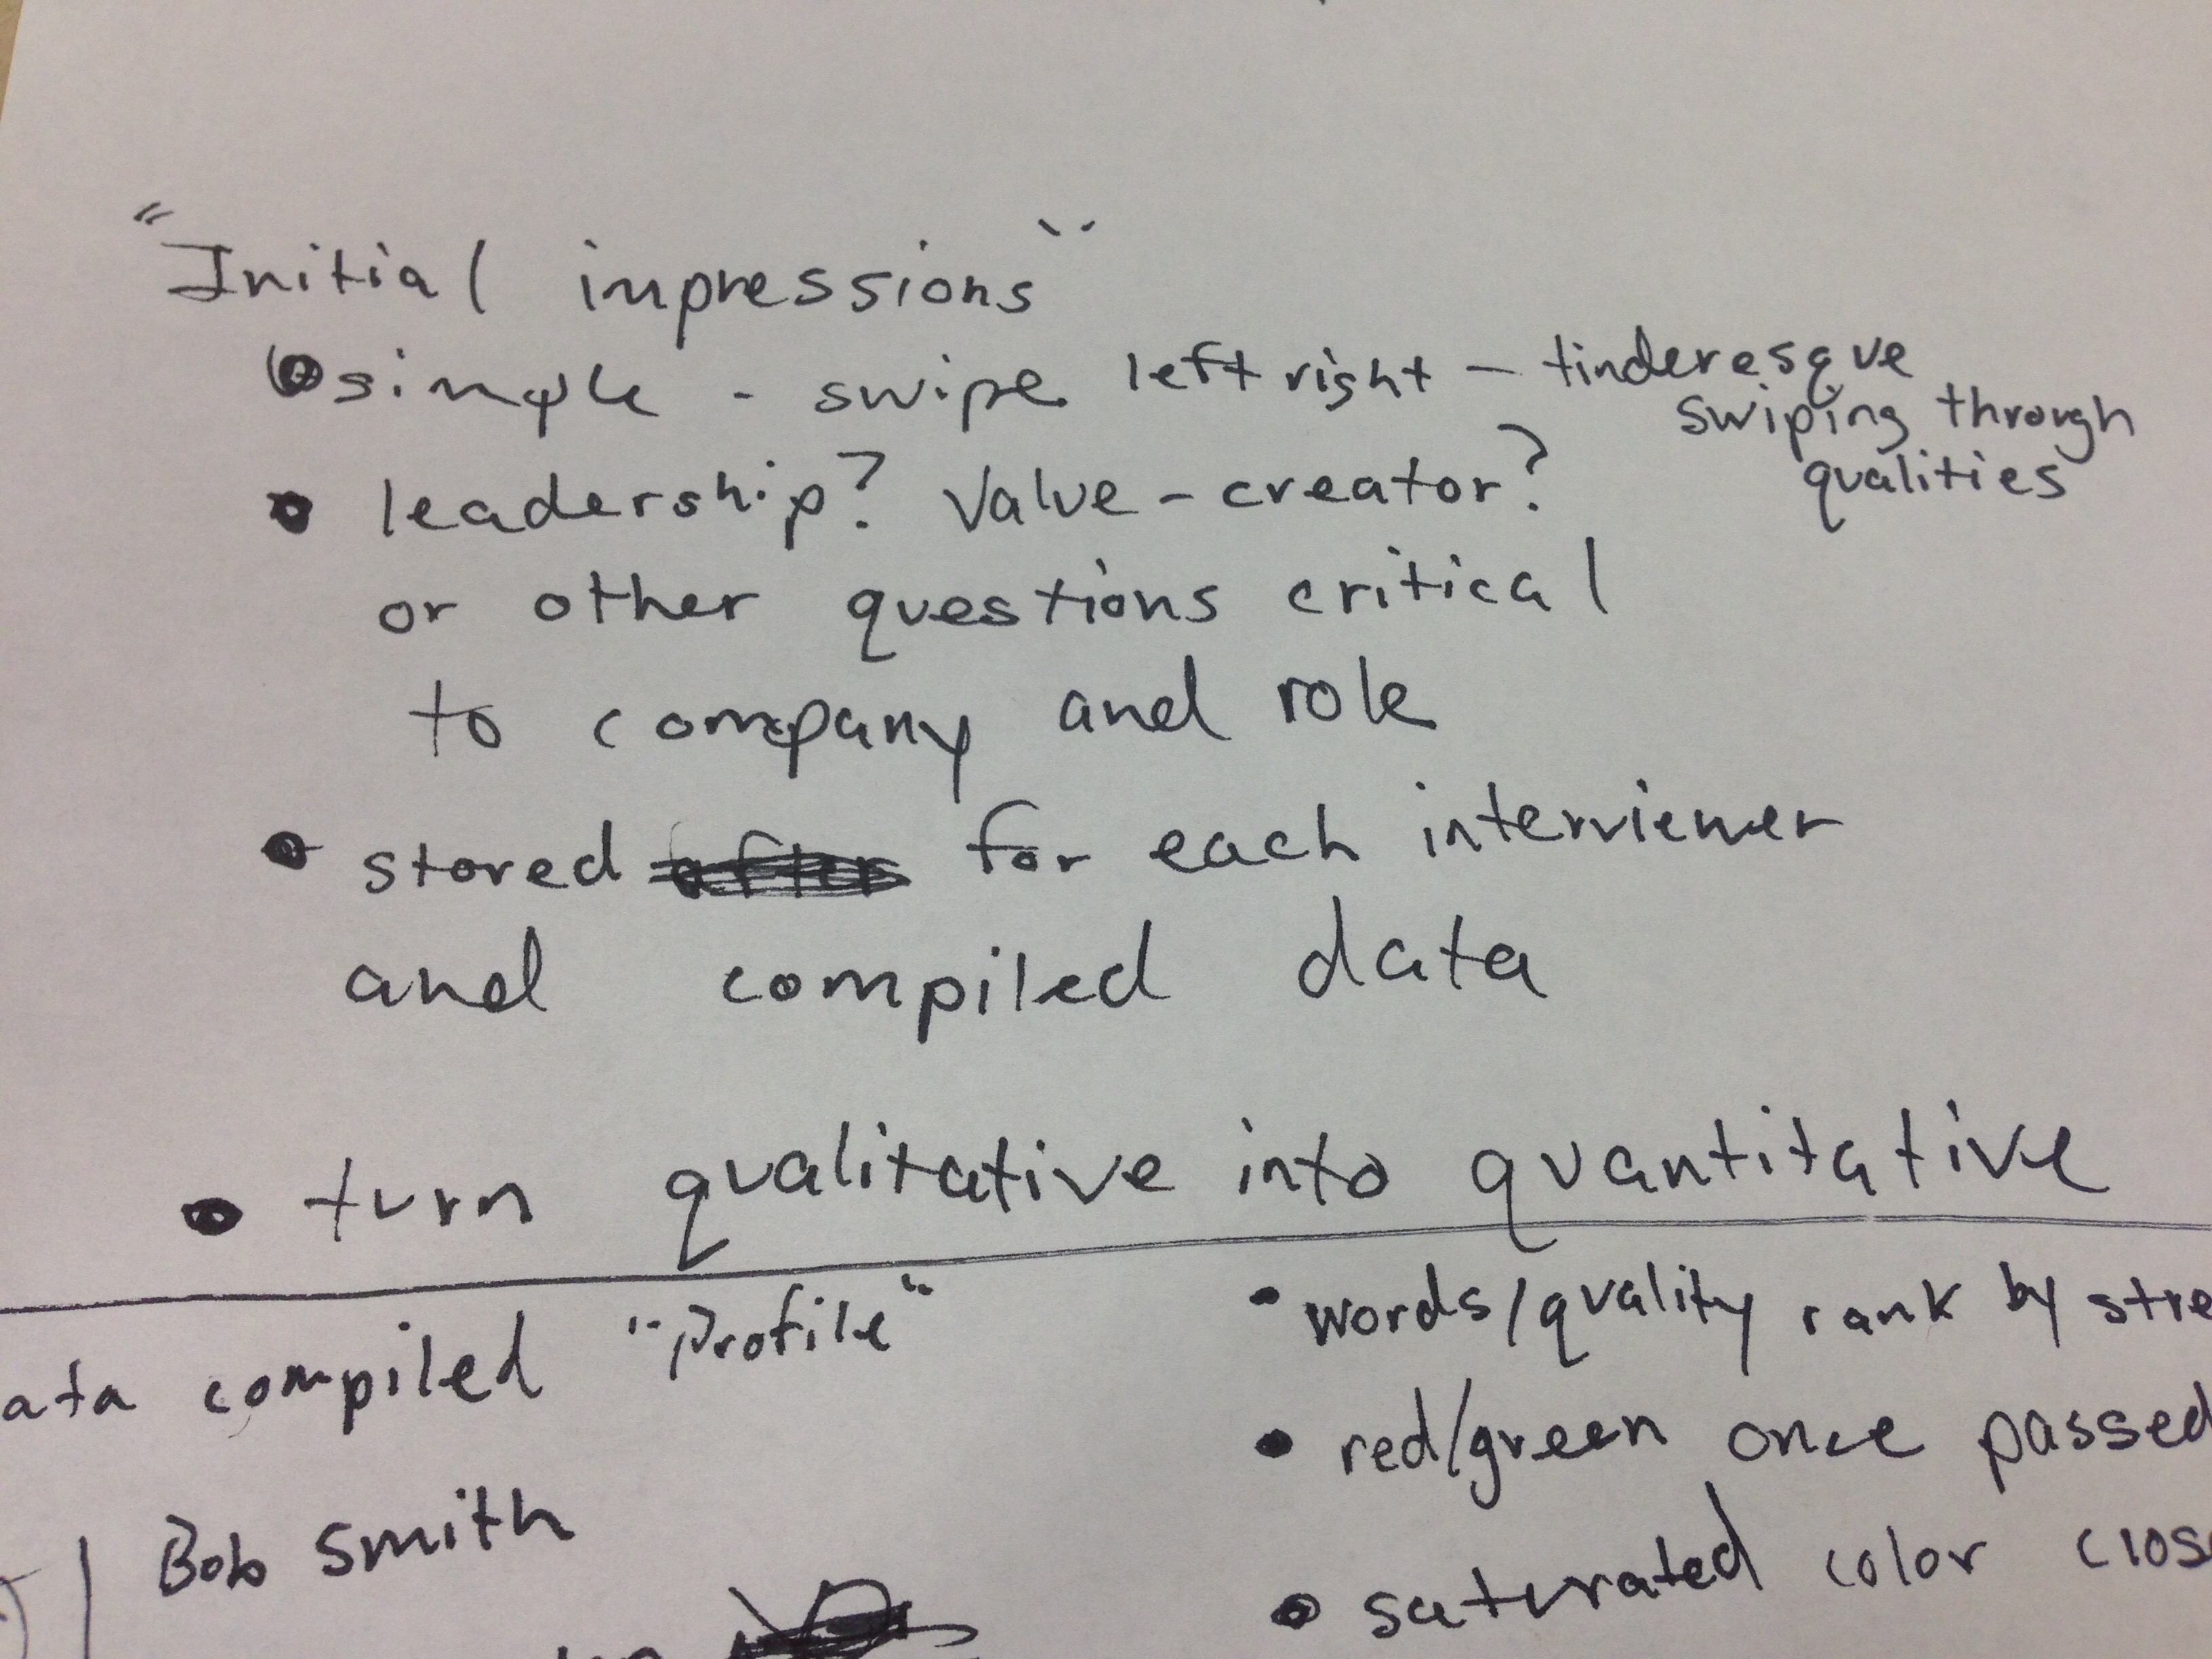 "Initial impressions"
• simple - swipe left right - tinderesque
swiping through
qualities
• leadership? Value-creator?
or other questions critical
to company and role
• stored after for each interviewer
and compiled data
• turn qualitative into quantitative
ata compiled "Profile"
Bob Smith
• words/quality rank by stre
• red/green once passed
• saturated color clos